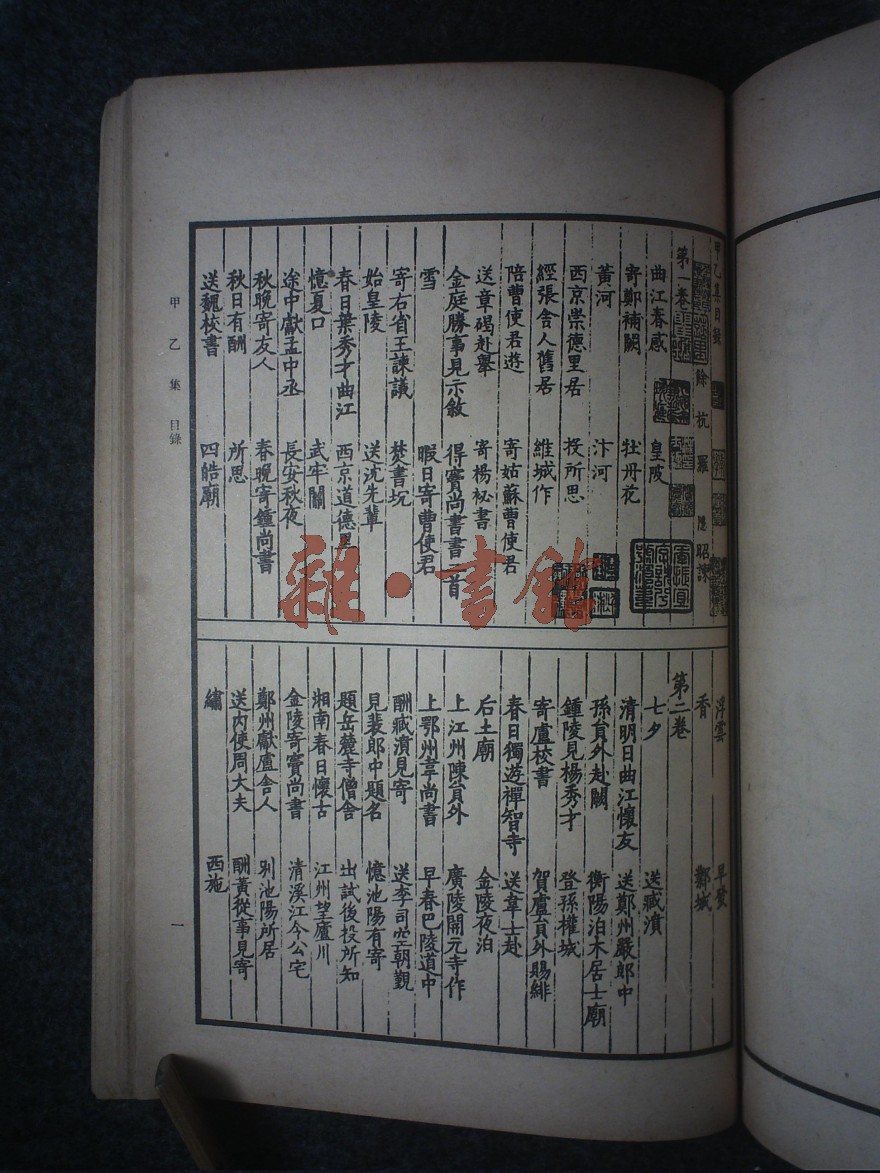 甲乙集目録
餘杭羅隠昭諫
第一卷
曲江春感 皇陂
寄鄭補闕 牡丹花
黃河 汴河
西京崇德里居 投所思
經張舍人舊居 維城作
陪曹使君遊 寄姑蘇曹使君
送章碣赴舉 寄楊祕書
金庭勝事見示敘 得竇尚書書二首
雪 暇日寄曹使君
寄右省王諫議 焚書坑
始皇陵 送沈先輩
春日葉秀才曲江 西京道德里
憶夏口 武牢關
途中獻孟中丞 長安秋夜
秋晚寄友人 春晚寄鍾尚書
秋日有酬 所思
送魏校書 四皓廟
浮雲 早發
香 鄴城
第二卷
七夕 送臧濆
清明日曲江懷友 送鄭州嚴郎中
孫員外赴闕 衡陽泊木居士廟
鍾陵見楊秀才 登孫權城
寄盧校書 賀盧員外賜緋
春日獨遊禪智寺 送韋士赴
后土廟 金陵夜泊
上江州陳員外 廣陵開元寺作
上鄂州韋尚書 早春巴陵道中
酬臧濆見寄 送李司空朝覲
見裴郎中題名 憶池陽有寄
題岳麓寺僧舍 出試後投所知
湘南春日懷古 江州望廬川
金陵寄竇尚書 清溪江令公宅
鄭州獻盧舍人 別池陽所居
送內使周大夫 酬黃從事見寄
繡 西施
甲乙集 目錄
一
雜·書館